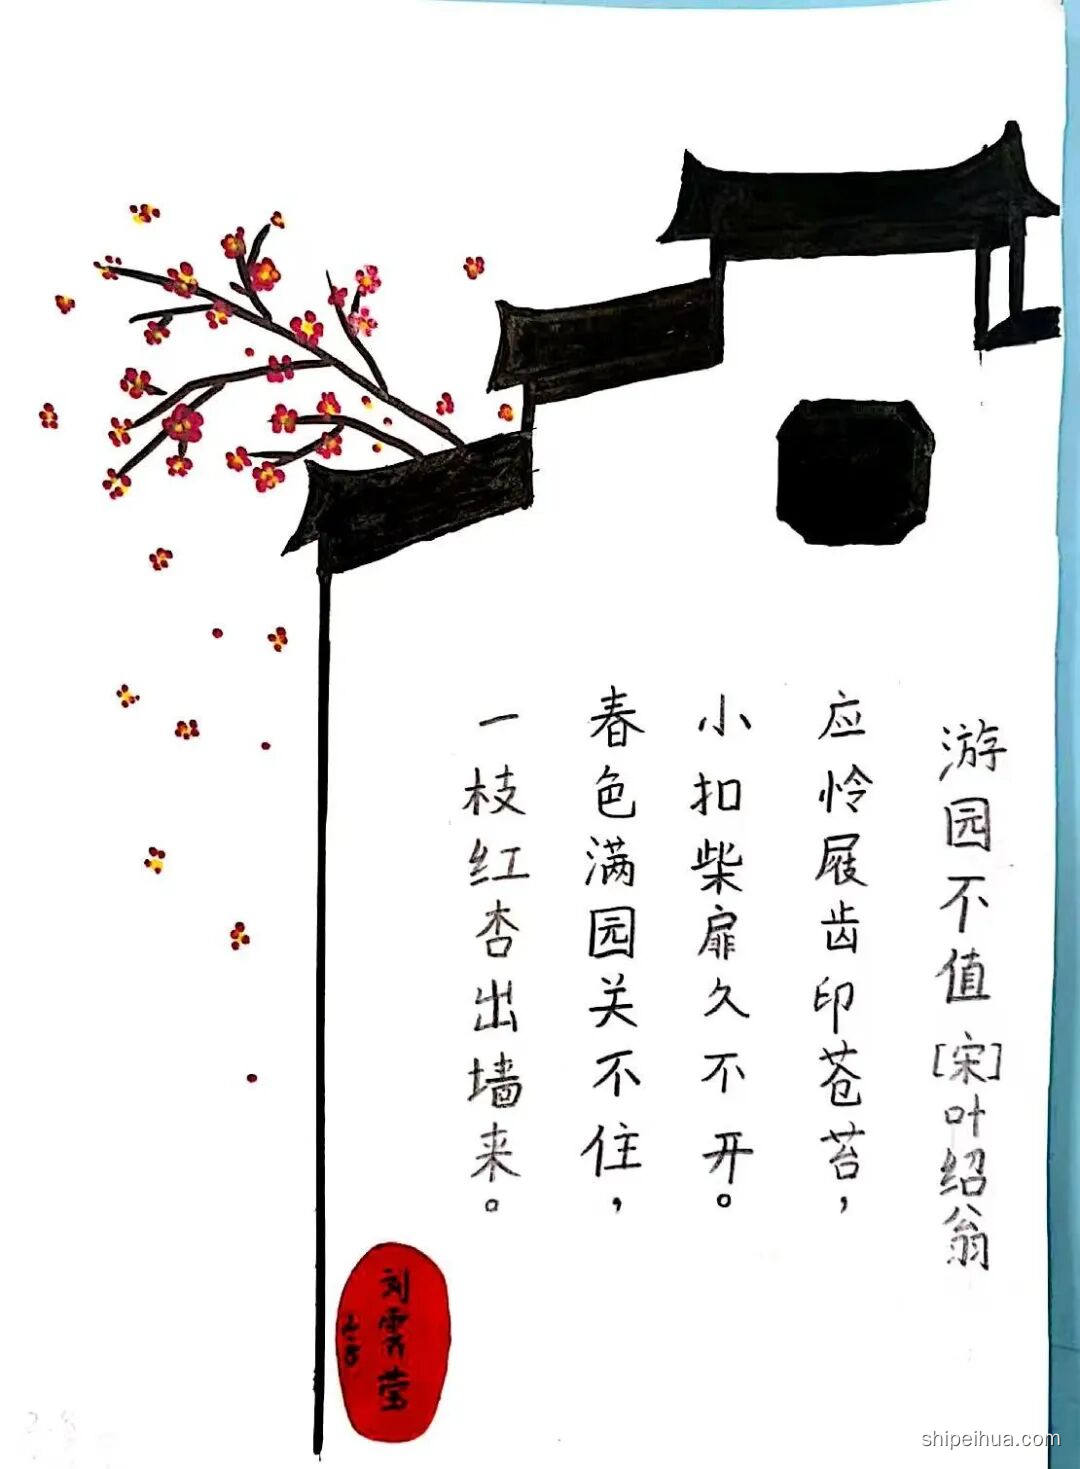 游园不值[宋]叶绍翁
应怜屐齿印苍苔，
小扣柴扉久不开。
春色满园关不住，
一枝红杏出墙来。
shipeihua.com